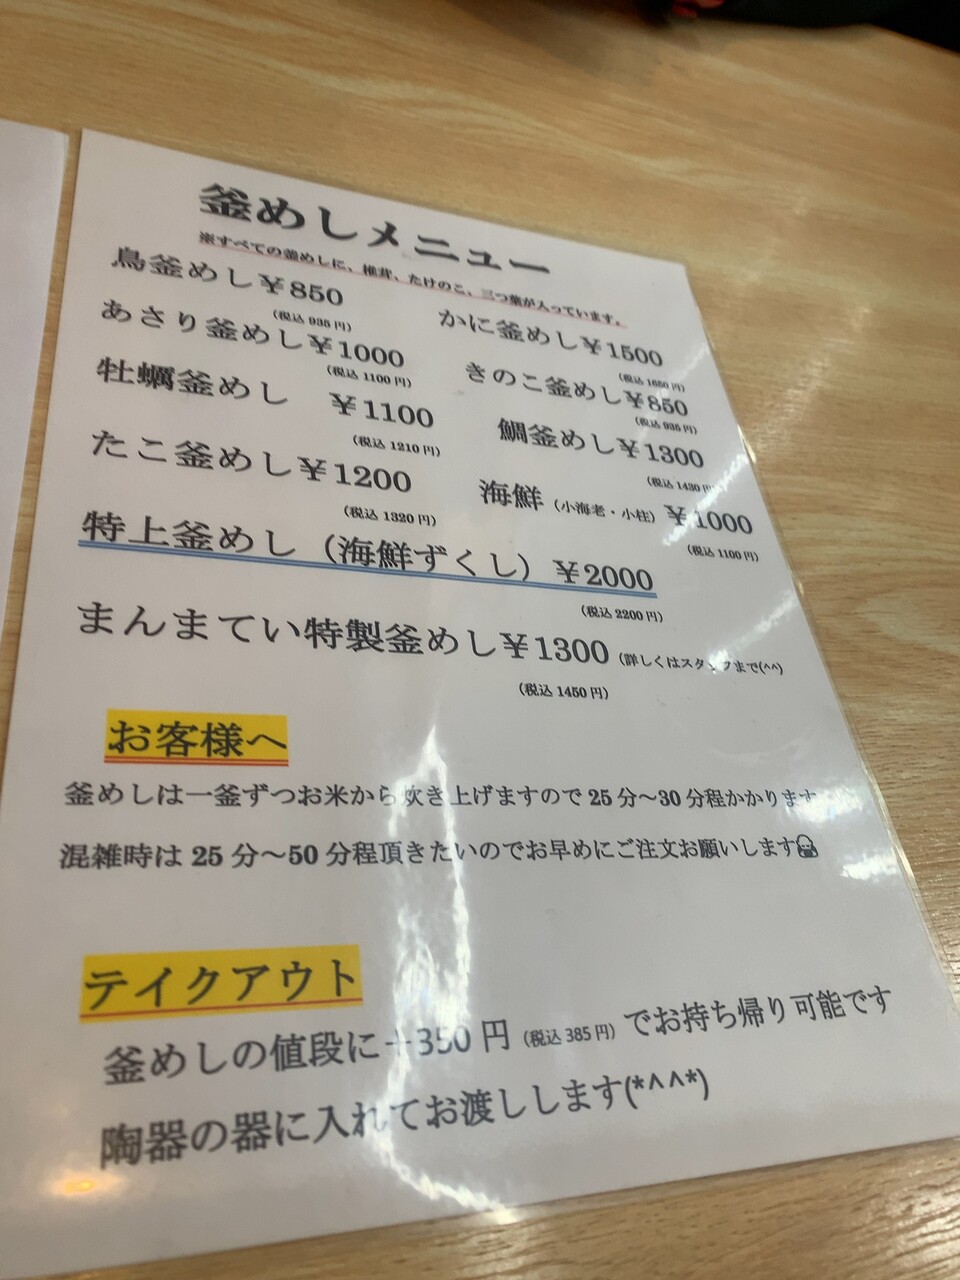 釜めしメニュー
※すべての釜めしに、椎茸、たけのこ、三つ葉が入っています。
鳥釜めし¥850
(税込 935円)
あさり釜めし¥1000
(税込 1100円)
牡蠣釜めし ¥1100
(税込 1210円)
たこ釜めし¥1200
(税込 1320円)
かに釜めし¥1500
(税込 1650円)
きのこ釜めし¥850
(税込 935円)
鯛釜めし¥1300
(税込 1430円)
海鮮(小海老・小柱)¥1000
(税込 1100円)
特上釜めし(海鮮ずくし)¥2000
(税込 2200円)
まんまてい特製釜めし¥1300(詳しくはスタッフまで(^^)
(税込 1450円)
お客様へ
釜めしは一釜ずつお米から炊き上げますので25分〜30分程かかります
混雑時は25分〜50分程頂きたいのでお早めにご注文お願いします
テイクアウト
釜めしの値段に+350円(税込 385円)でお持ち帰り可能です
陶器の器に入れてお渡しします(*^^*)